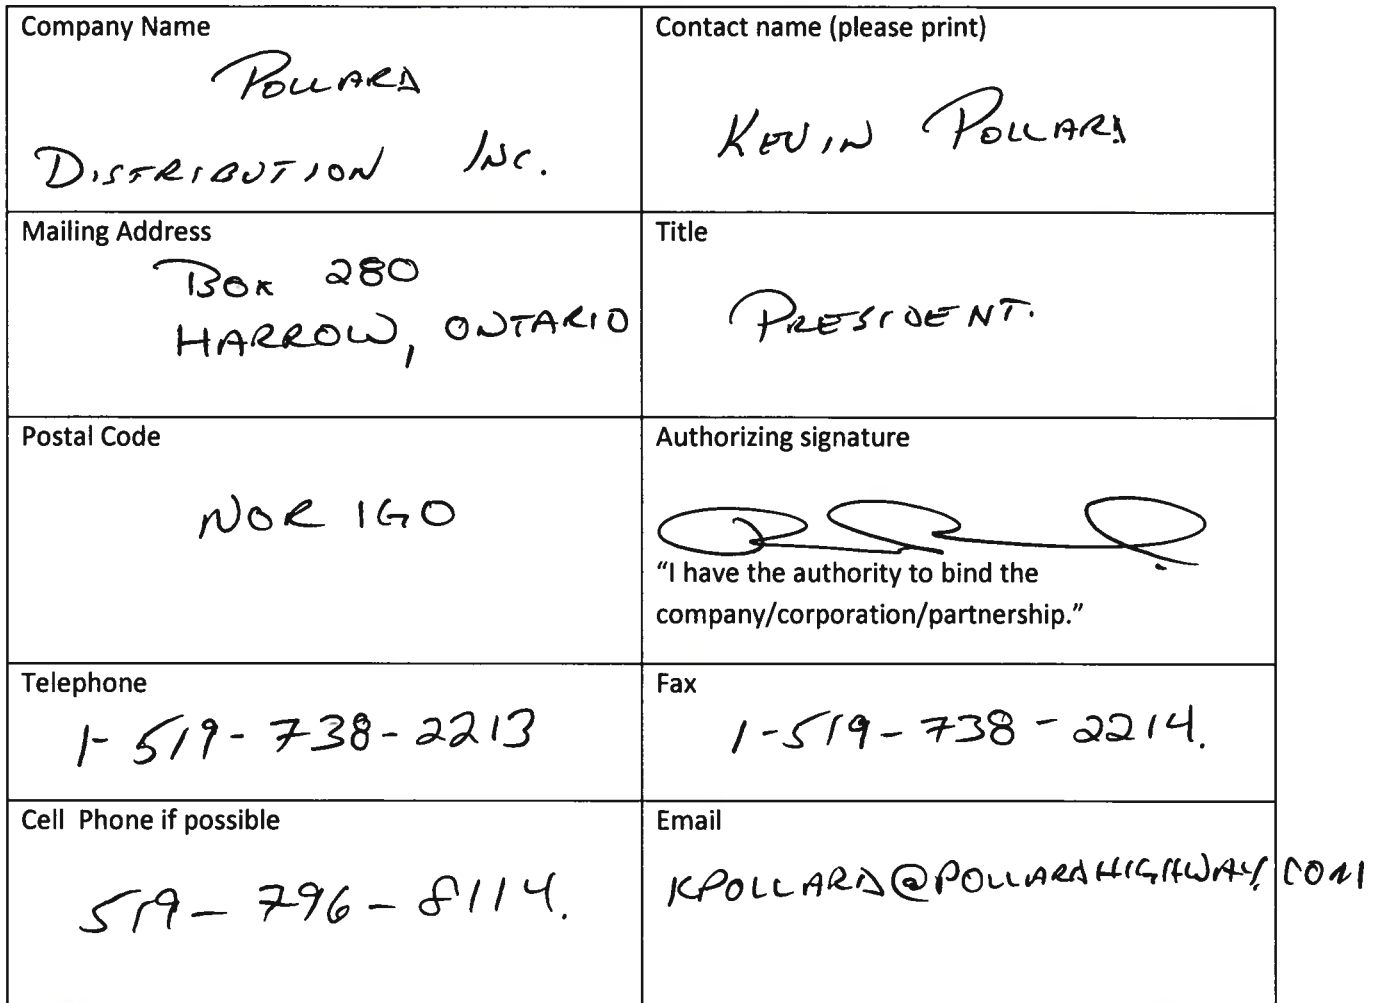 Company Name
POLLARD
DISTRIBUTION INC.
Contact name (please print)
KEVIN POLLARD
Mailing Address
BOX 280
HARROW, ONTARIO
Title
PRESIDENT.
Postal Code
NOR 1G0
Authorizing signature
"I have the authority to bind the
company/corporation/partnership."
Telephone
1-519-738-2213
Fax
1-519-738-2214.
Cell Phone if possible
519-796-8114.
Email
KPOLLARD@POLLARDHIGHWAY.COM